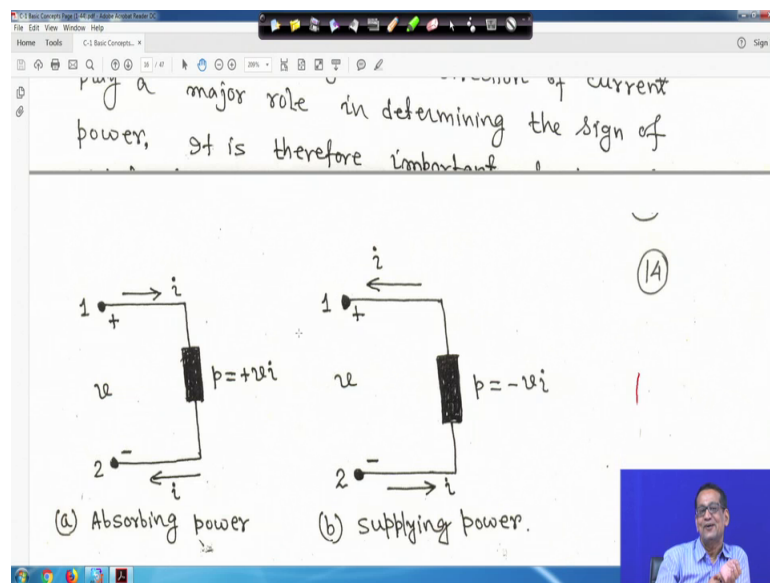 C-1 Basic Concepts Page (1-48).pdf - Adobe Acrobat Reader DC
File Edit View Window Help
Home Tools C-1 Basic Concepts... × Sign
16 / 47 200%
play a major role in determining the sign of
of current
power, It is therefore important
14
i
1 +
v p=+vi
2 -
i
(a) Absorbing power
i
1 +
v p=-vi
2 -
i
(b) supplying power.